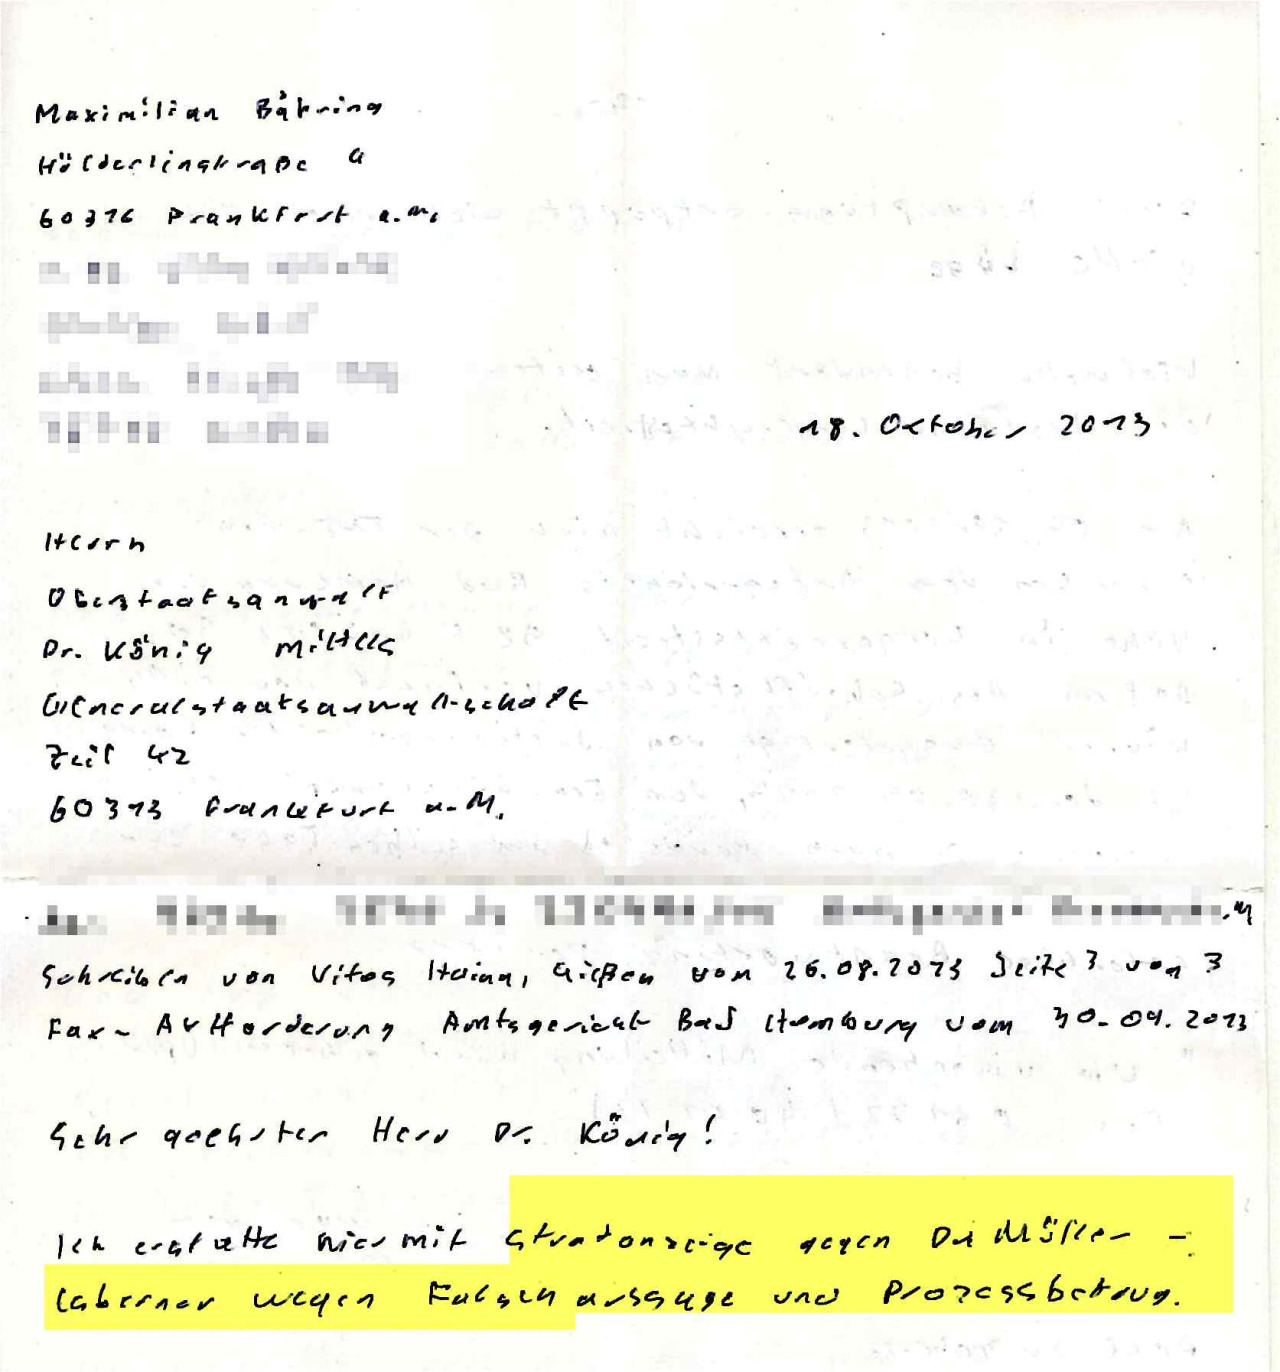 Maximilian Bähring
Hölderlinstraße 4
60316 Frankfurt a.M.
18. Oktober 2013
Herrn
Oberstaatsanwalt
Dr. König mittels
Generalstaatsanwaltschaft
Zeil 42
60313 Frankfurt a.M.
Schreiben von Vitos Haina, Gießen vom 26.08.2013 Seite 3 von 3
Fax- Aufforderung Amtsgericht Bad Homburg vom 30.09.2013
Sehr geehrter Herr Dr. König!
Ich erstatte hiermit Strafanzeige gegen Dr. Müller-
Isberner wegen Falschaussage und Prozessbetrug.